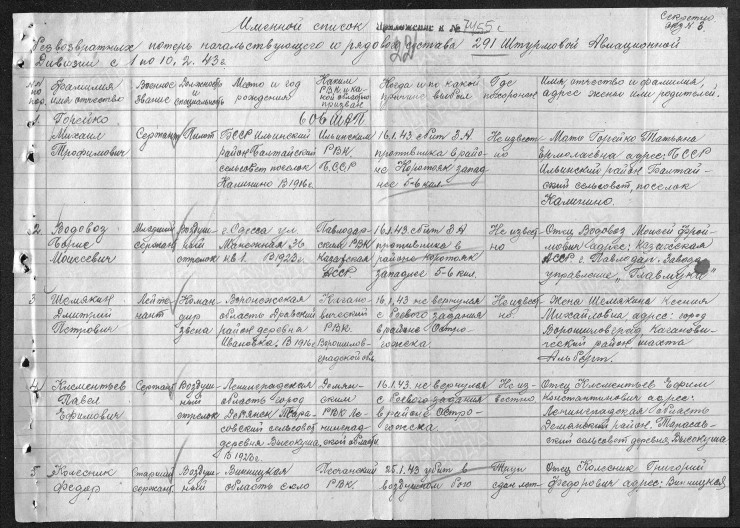 Секретно
экз. № 3.
Именной список
Приложение к № 7455 с
безвозвратных потерь начальствующего и рядового состава 291 Штурмовой Авиационной
Дивизии с 1 по 10. 2. 43 г.
№№ по пор. Фамилия имя отчество Военное звание Должность и специальность Место и год рождения Каким РВК и какой области призван Когда и по какой причине выбыл Где похоронен Имя, отчество и фамилия, адрес жены или родителей.
606 ШАП
1. Горейко Михаил Трофимович
Сержант
Пилот
БССР Ильинский
район Балтайский
сельсовет поселок
Калинино В 1916 г.
Ильинским
РВК
БССР
16.1.43. сбит З.А
противника в райо-
не Коротояк запад-
нее 5-6 кил.
Неизвест-
но
Мать Горейко Татьяна
Ермолаевна адрес: БССР
Ильинский район Балтай-
ский сельсовет, поселок
Калинино.
2. Водовоз
Борис
Моисеевич
Младший
сержант
Воздуш-
ный
стрелок
г. Одесса ул.
Манежная 36
кв 1. В 1923 г.
Павлодар-
ский РВК
Казахская
АССР
16.1.43. сбит З.А
противника в
районе Коротояк
западнее 5-6 кил.
Неизвест-
но
Отец Водовоз Моисей Фрой-
мович адрес: Казахская
АССР г. Павлодар. Заводо
управление
3. Шемякин
Дмитрий
Петрович
Лейте-
нант
Коман-
дир
звена
Воронежская
область
район деревня
Ивановка. В 1916 г.
Кагано-
вический
РВК.
Ворошилов-
градской обл.
16.1.43 не вернулся
с боевого задания
в районе Остро-
гожска.
Неизвест-
но
Жена Шемякина Ксения
Михайловна адрес: город
Ворошиловград, Каганови-
ческий район, шахта
Альберт.
4. Климентьев
Павел
Ефимович
Сержант
Воздуш-
ный
стрелок
Ленинградская
область город
Демянск Тара-
совский сельсовет
деревня Высокуша.
В 1920 г.
Демян-
ским
РВК Ле-
нинград-
ской области
16.1.43. не вернулся
с боевого задания
в районе Остро-
гожска.
Неиз-
вестно
Отец Климентьев Ефим
Константинович адрес:
Ленинградская область
Демянский район. Тарасов-
ский сельсовет деревня Высокуша
5. Колесник
Федор
Старший
сержант.
Воздуш-
ный
Винницкая
область село
Песчанский
РВК.
25.1.43 убит в
воздушном бою
Труп
сдан
Отец Колесник Григорий
Федорович адрес: Винницкая